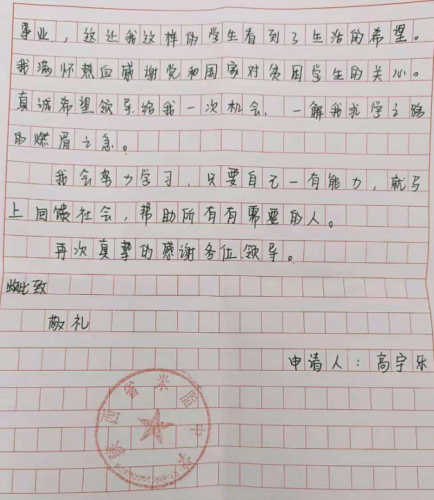 事业，这让我这样的学生看到了生活的希望。
我满怀热血感谢党和国家对贫困学生的关心。
真诚希望领导给我一次机会，一解我求学之路
的燃眉之急。
我会努力学习，只要自己一有能力，就马
上回馈社会，帮助所有有需要的人。
再次真挚的感谢各位领导。
此致
敬礼
申请人：高宇乐